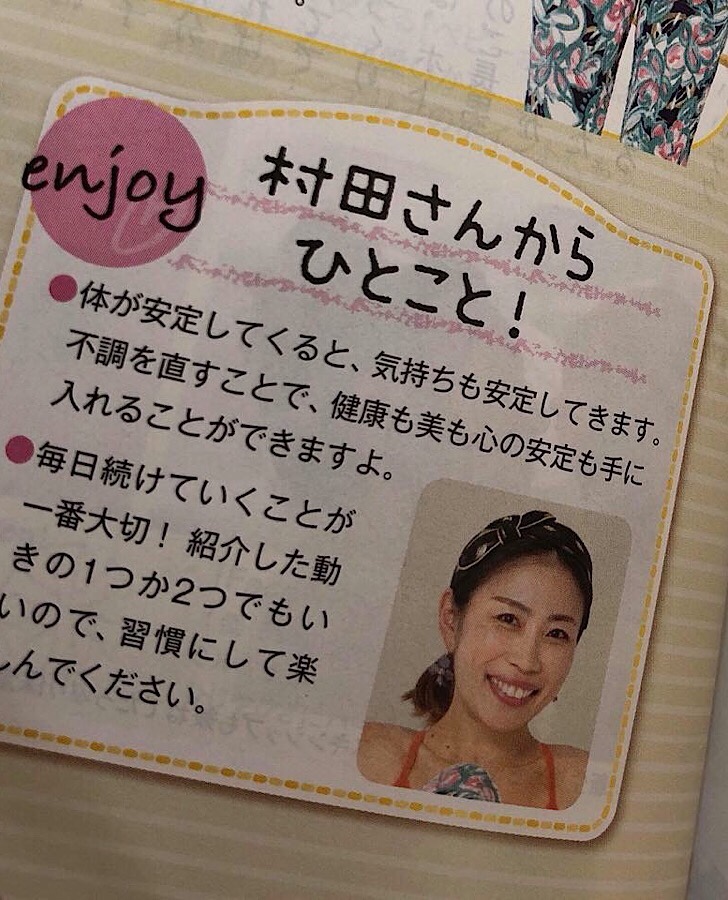 enjoy
村田さんから
ひとこと!
●体が安定してくると、気持ちも安定してきます。
不調を直すことで、健康も美も心の安定も手に
入れることができますよ。
●毎日続けていくことが
一番大切!紹介した動
きの1つか2つでもい
いので、習慣にして楽
しんでください。